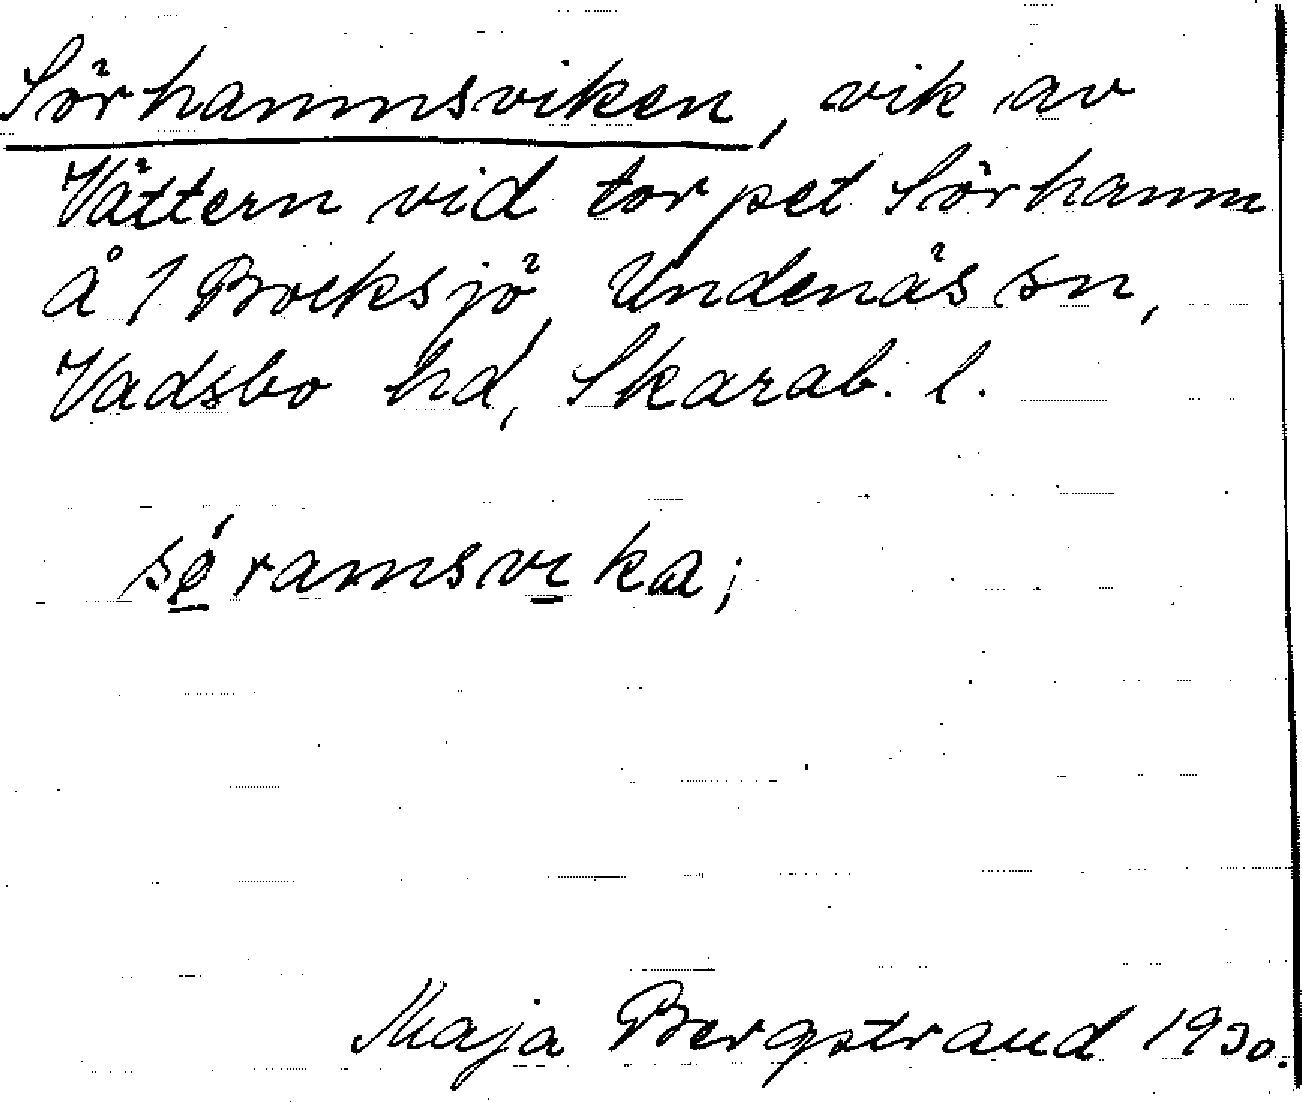 Sörhamnsviken, vik av
Vättern vid torpet Sörhamn
å 1 Bocksjö, Undenäs sn,
Vadsbo hd, Skarab. l.
söramsvika;
Maja Bergstrand 1930.